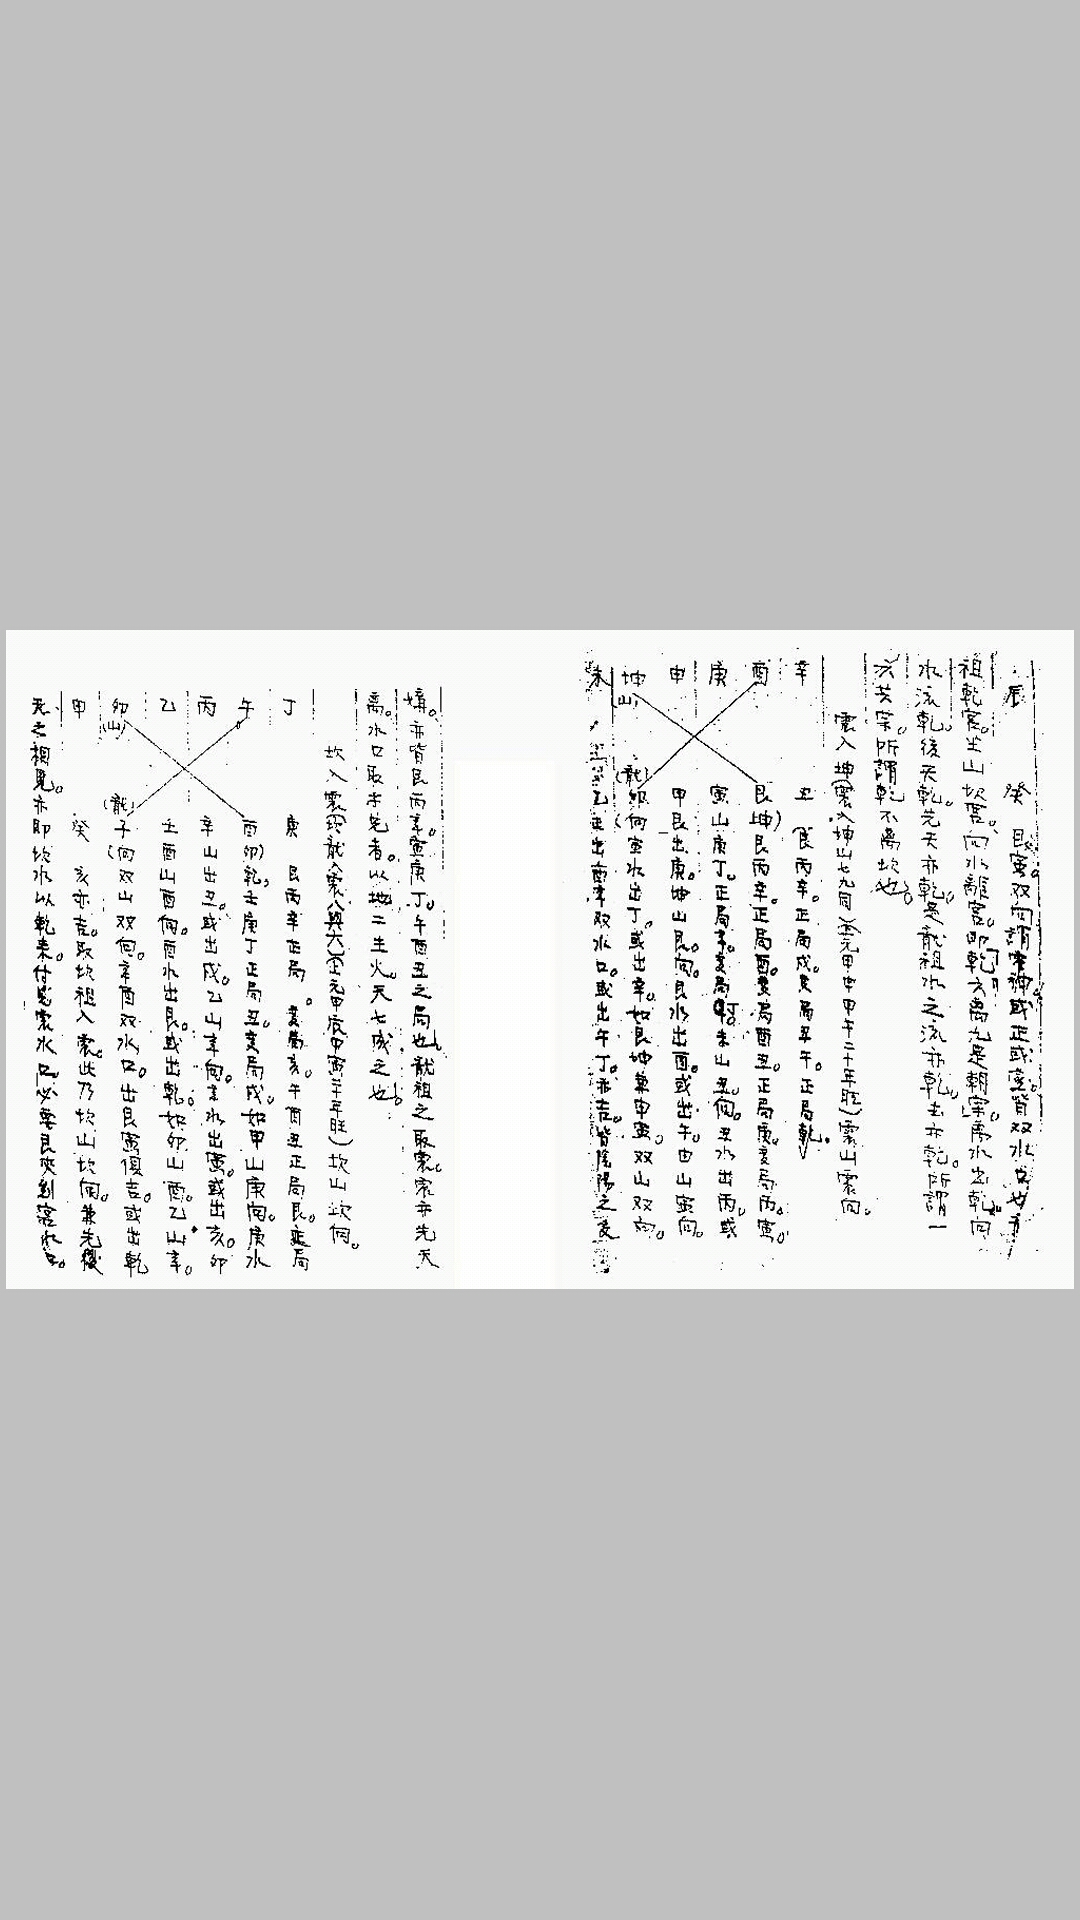 辰 癸 艮寅。双向謂 神或正或 皆双水
祖乾宮。坐山坎宮。向水離宮。即乾六離九是朝宗。离水出乾向
水流乾。後天乾。先天亦乾。是龍祖水之流亦乾。去亦乾。所謂一
六共宗。所謂乾不离坎也。
震入坤(震入坤山七九局)(五元甲申甲午二十年旺)震山震向。
辛 丑 艮丙辛。正局戌変局丑午。正局乾。
酉 艮坤)艮丙辛。正局酉変局酉丑。正局庚変局丙寅。
庚 寅山庚丁。正局 変局 未山丑向。丑水出丙。或
申 甲艮出庚。坤山艮向。艮水出酉。或出午。申山寅向。
坤山 (龍)卯向寅水出丁。或出辛。如艮坤兼申寅。双山双向。
未 乙 出酉辛双水口。或出午丁。亦吉。皆陰陽之交
媾。亦皆艮丙辛。寅庚丁。午酉丑之局也。龍祖之取震。震亦先天
离。水口取未先者。以地二生火。天七成之也。
坎入震(坎龍入震八與六)(五元甲辰甲寅二十年旺)坎山坎向。
丁 庚 艮丙辛正局。変局亥。午酉丑正局艮。変局
午 酉卯)乾,壬庚丁正局丑。変局戌。如甲山庚向。庚水
丙 辛山出丑。或出戌。乙山辛向。辛水出寅。或出亥。卯
乙 壬酉山酉向。酉水出艮。或出乾。如卯山酉。乙山辛。
卯山 (龍)子向双山双向。辛酉双水口。出艮寅俱吉。或出乾
甲 癸 亥亦吉。取坎祖入震。此乃坎山坎向。兼先後
天之相見。亦即坎水以乾来。 震水口必要艮 水口。